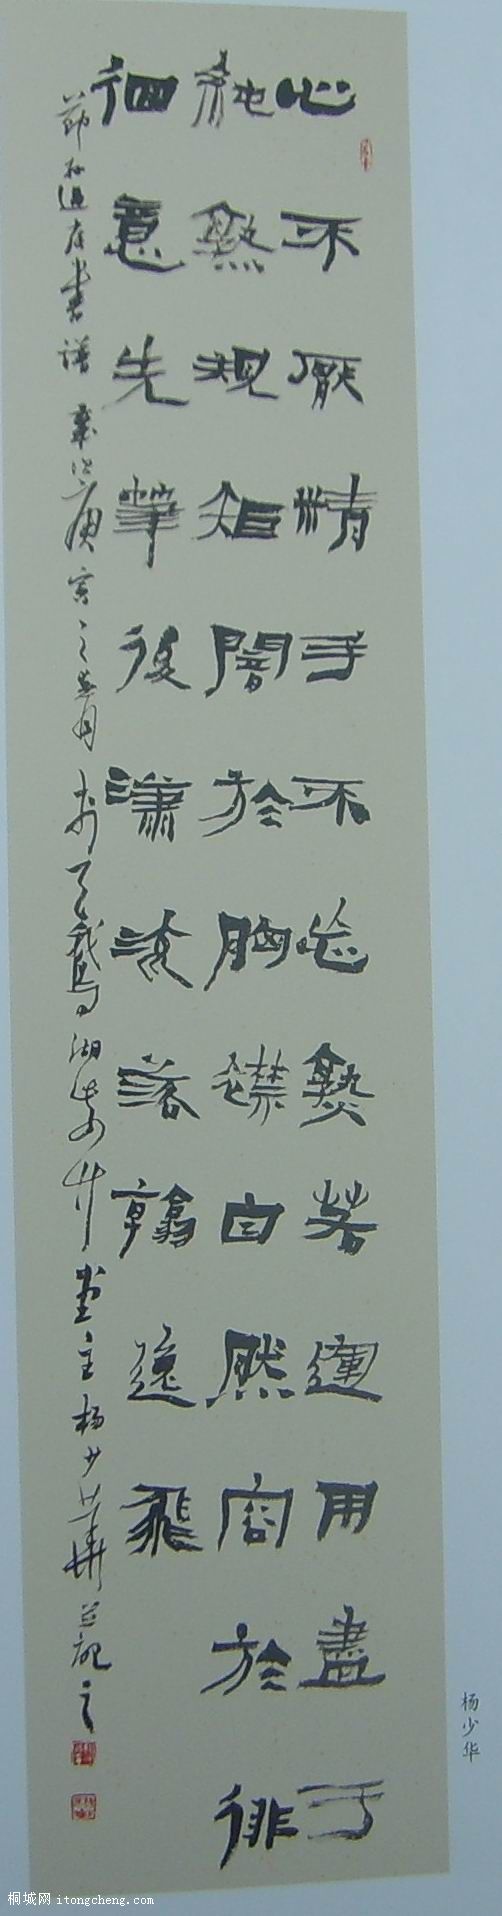 心不厭精手不忘熟若運用盡于
純熟規矩闇於胸襟自然容於徘
徊意先筆後瀟流落翰逸飛
節孫過庭書譜歲次庚寅之月於天鵝湖竹堂主楊少華并記之
杨少华
桐城网 itongcheng.com